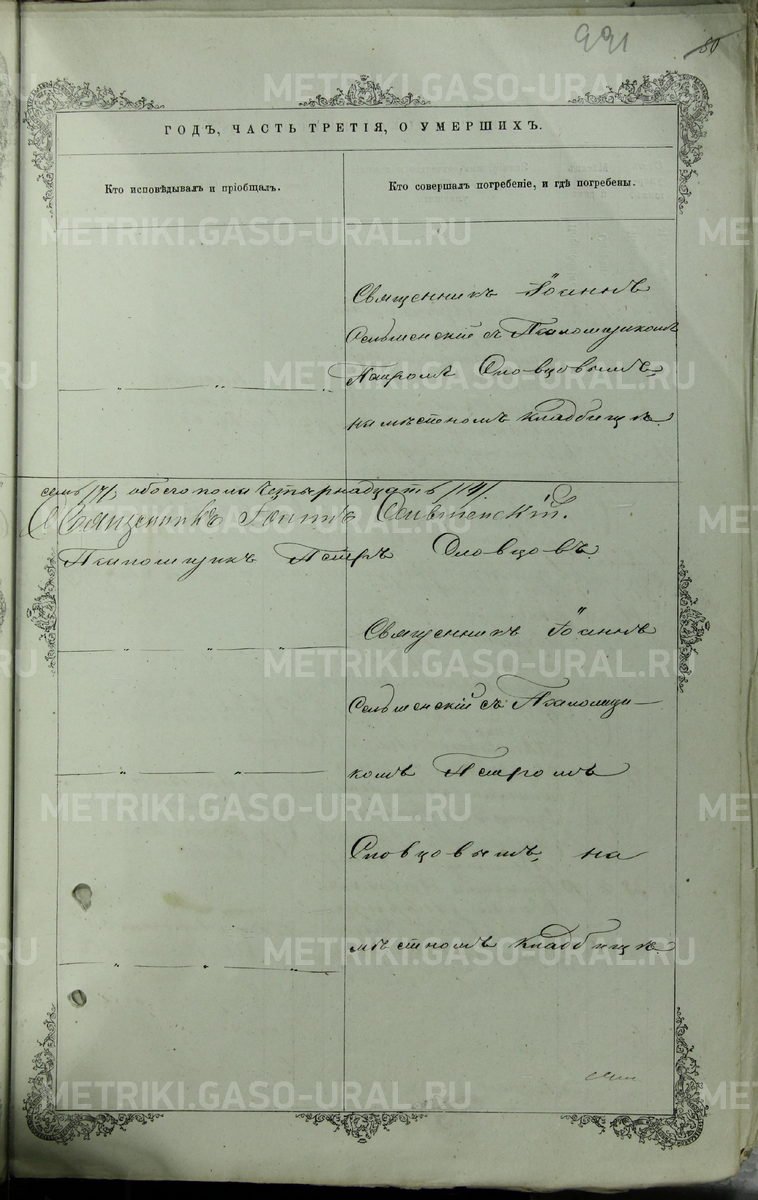 991
80
ГОДЪ, ЧАСТЬ ТРЕТІЯ, О УМЕРШИХЪ.
Кто исповѣдывалъ и пріобщалъ.
Кто совершалъ погребеніе, и гдѣ погребены.
Священникъ Іоаннъ
Сельменскій съ Псаломщикомъ
Петромъ Словцовымъ,
на мѣстномъ кладбищѣ.
семь /7/, обоего пола четырнадцать /14/.
Священникъ Іоаннъ Сельменскій.
Псаломщикъ Петръ Словцовъ.
Священникъ Іоаннъ
Сельменскій съ Псаломщи-
комъ Петромъ
Словцовымъ, на
мѣстномъ кладбищѣ.
METRIKI.GASO-URAL.RU